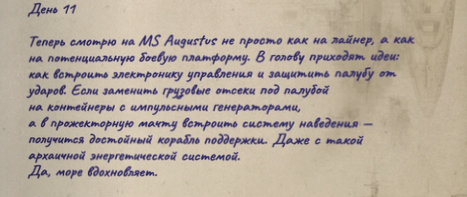 День 11
Теперь смотрю на MS Augustus не просто как на лайнер, а как
на потенциальную боевую платформу. В голову приходят идеи:
как встроить электронику управления и защитить палубу от
ударов. Если заменить грузовые отсеки под палубой
на контейнеры с импульсными генераторами,
а в прожекторную мачту встроить систему наведения —
получится достойный корабль поддержки. Даже с такой
архаичной энергетической системой.
Да, море вдохновляет.